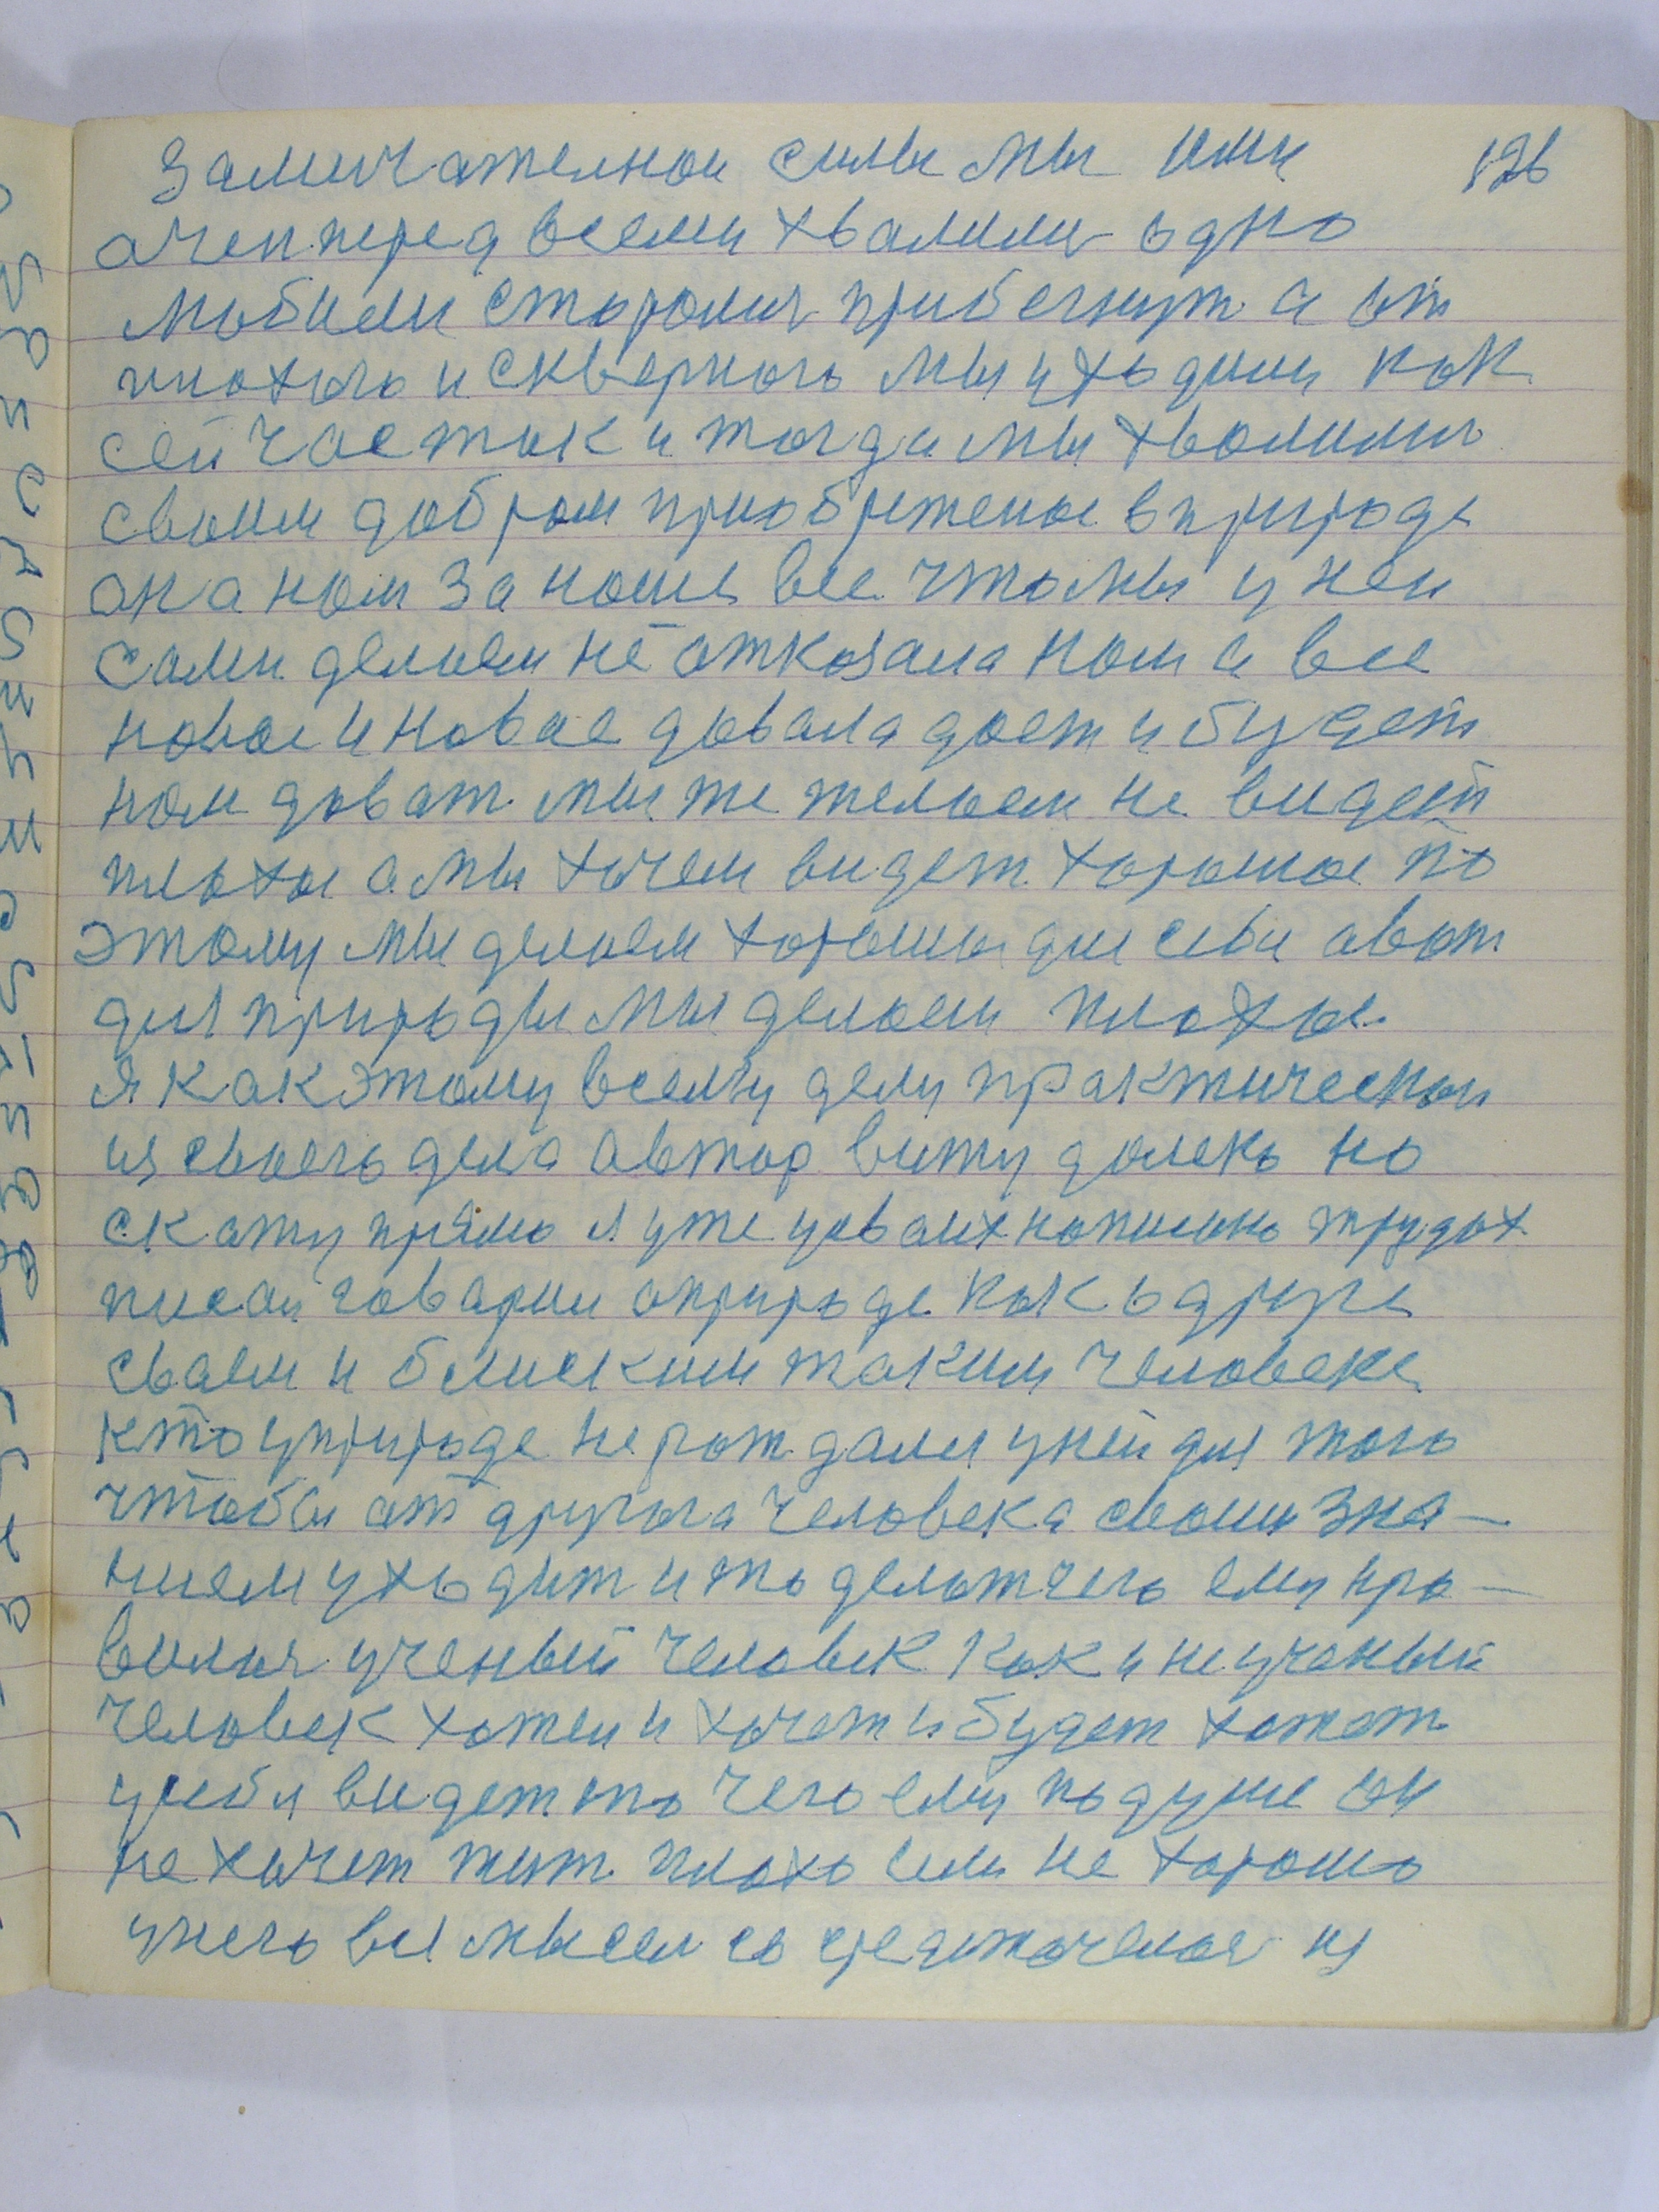 126
Замичателнои силы мы ими
очен перед всеми хвалили одно
любили старалис прибегнут а от
плохого и скверного мы ухъдили как
сейчас так и тогда мы хволилис
своим добром приобретеное в природе
она ном за наше все что мы у неи
сами делаем не отказала ном а все
новое и новое довала дает и будет
ном доват мы же желаем не видет
плохое а мы хочем видет хорошое по
этому мы делаем хорошые для себи авот
для природы мы делаем плохое.
я как этому всему делу практическои
из своего дела автор вижу долеко но
скажу прямо я уже у своих написано трудох
писал говарил о природе как о друге
своем иблиским таким человеке
кто у природе не рождался у ней для того
чтобы от другога человека своим зна-
нием ухъдит и то делат чего ему нра-
вилися ученый человек как и не ученый
человек хотел и хочет и будет хотет
у себя видет то чего ему по душе он
не хочет жит плохо или не хорошо
у него все мысли со средоточеное из